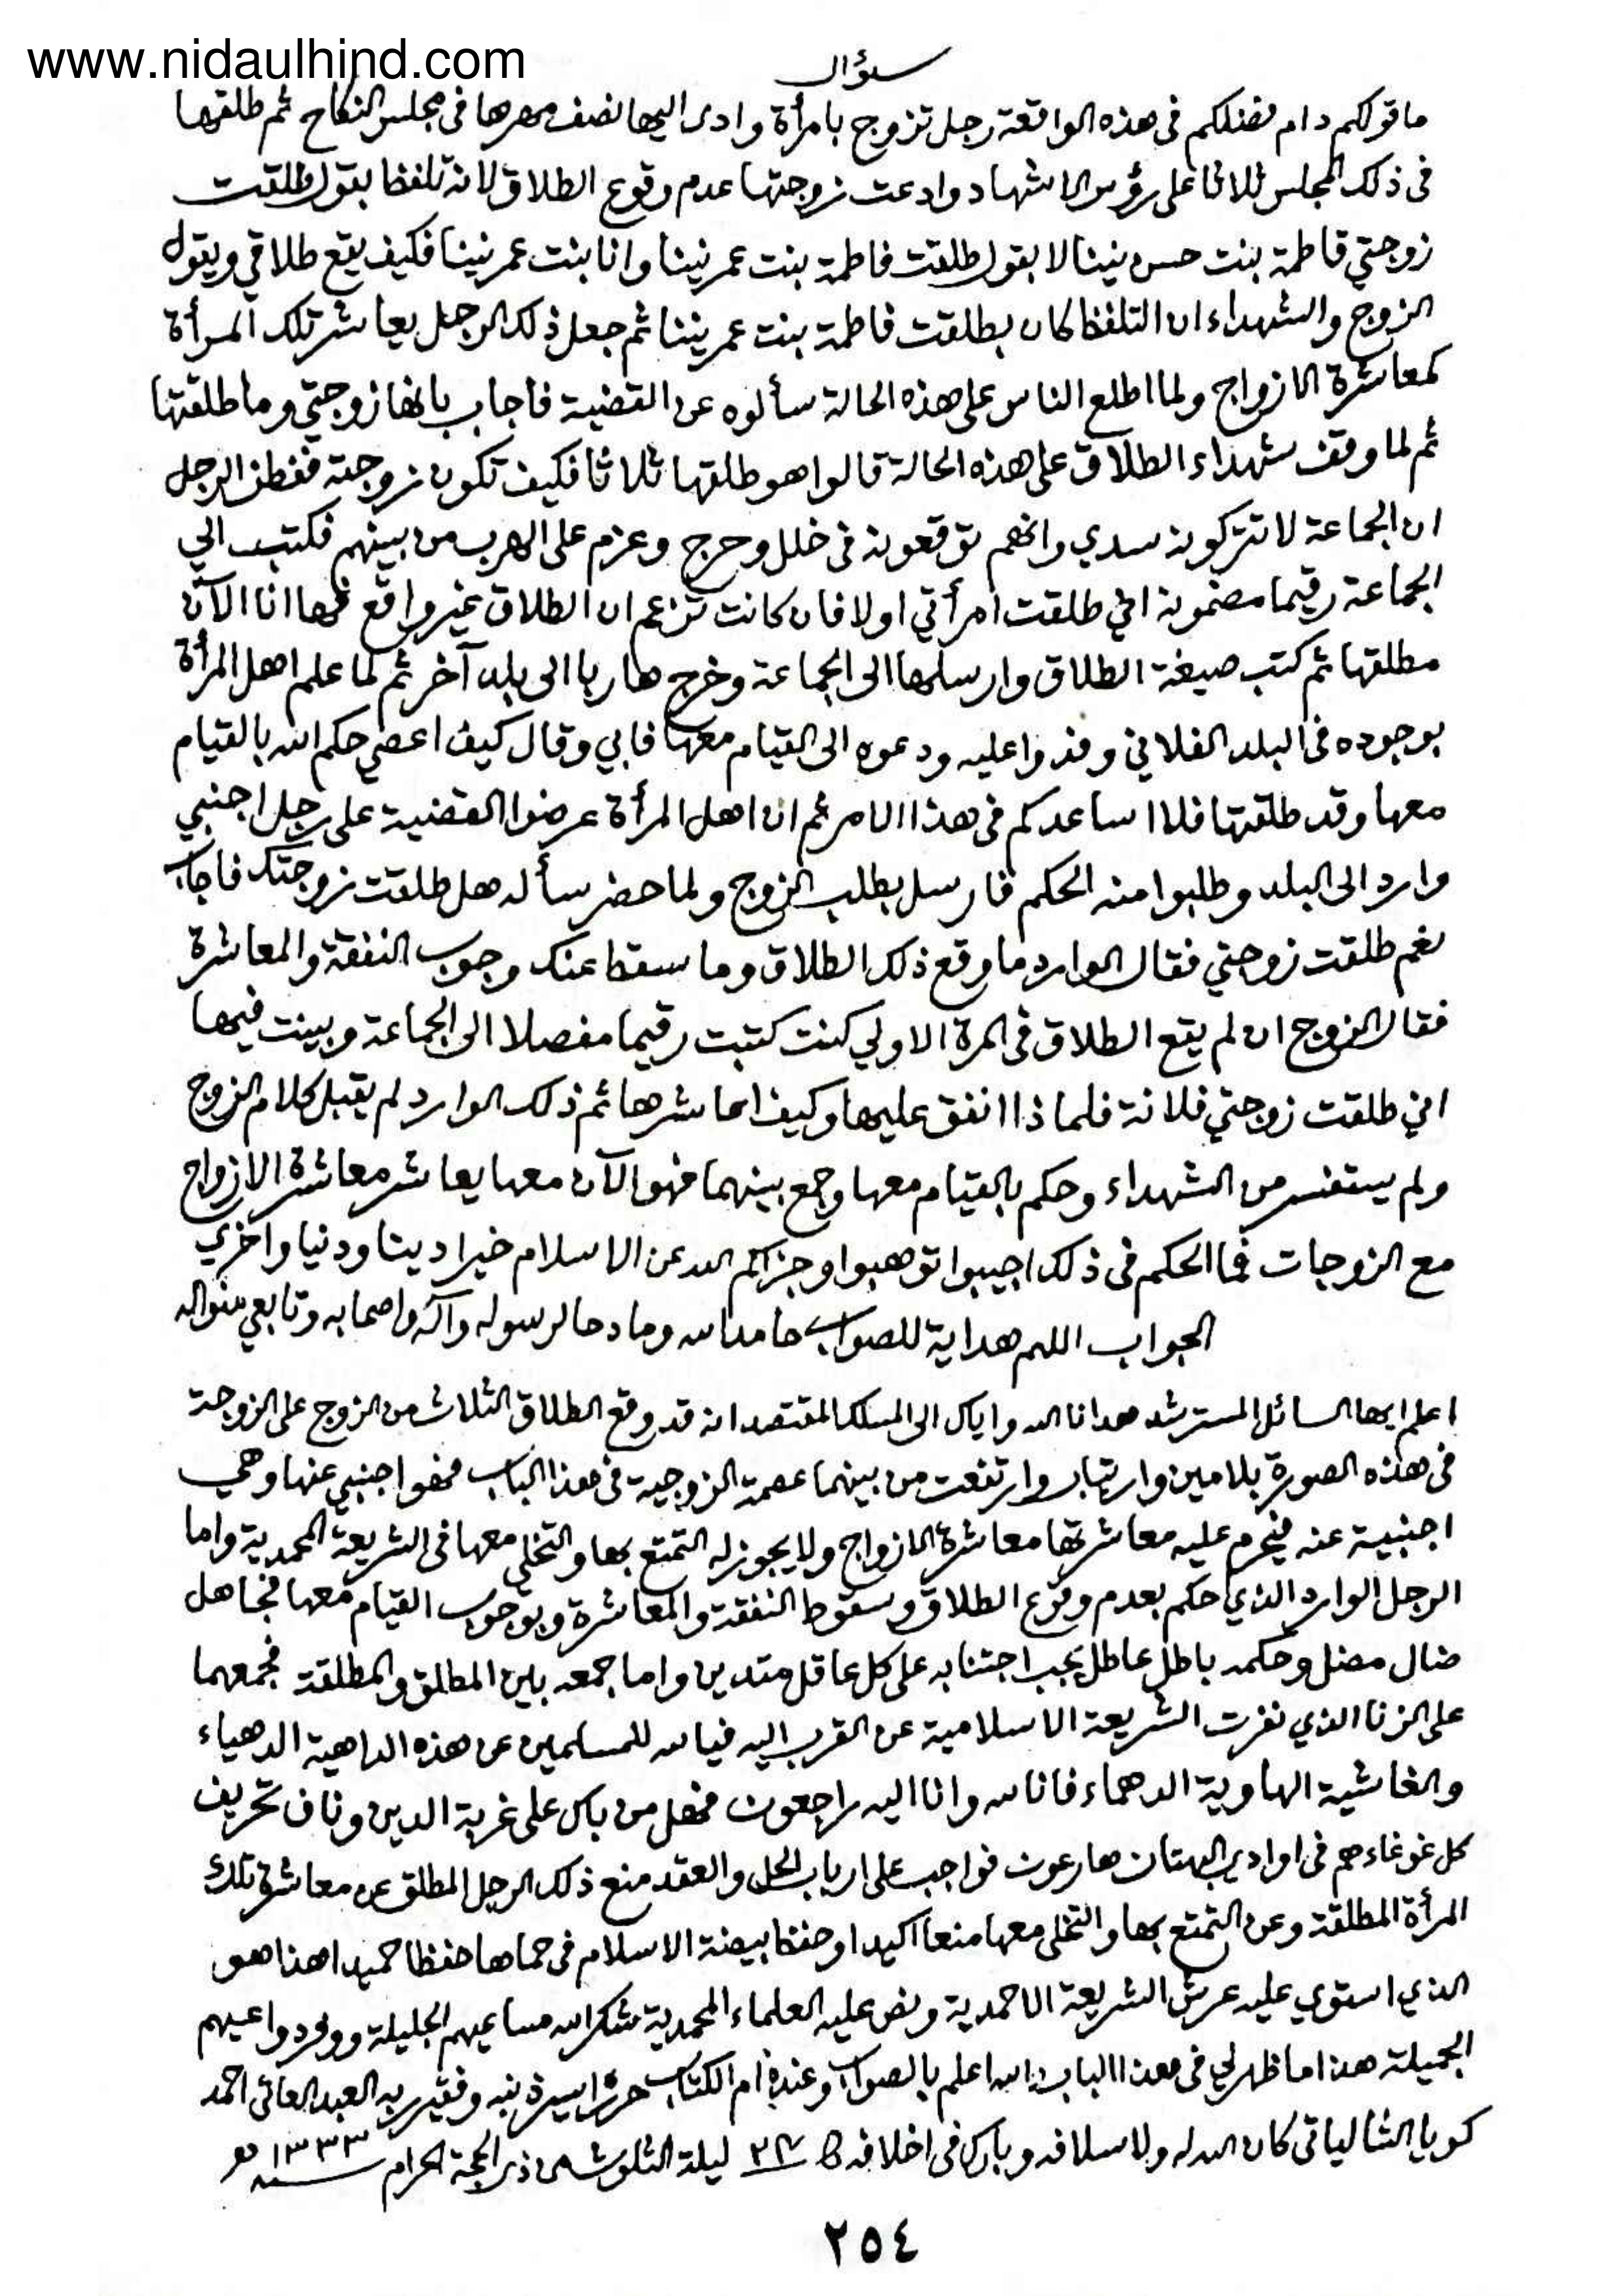 www.nidaulhind.com
سؤال
ما قولكم دام فضلكم فى هذه الواقعة رجل تزوج بامرأة وادى اليها نصف مهرها فى مجلس النكاح ثم طلقها
فى ذلك المجلس ثلاثا على رؤس الاشهاد وادعت زوجتها عدم وقوع الطلاق لانه تلفظ بقول طلقت
زوجتي فاطمة بنت حسن نينا لا بقول طلقت فاطمة بنت عمر نينا وانا بنت عمر نينا فكيف يقع طلاقي ويقول
الزوج والشهداء ان التلفظ كان بطلقت فاطمة بنت عمر نينا ثم جعل ذلك الرجل يعاشر تلك المرأة
كمعاشرة الازواج ولما اطلع الناس على هذه الحالة سألوه عن القضية فاجاب بانها زوجتي وما طلقتها
ثم لما وقف شهداء الطلاق على هذه الحالة قالوا هو طلقها ثلاثا فكيف تكون زوجة ففطن الرجل
ان الجماعة لا تتركونه سدي وانهم توقعونه فى خلل وحرج وعزم على الهرب من بينهم فكتب الي
الجماعة رقيما مضمونه اني طلقت امرأتي اولا فان كانت تزعم ان الطلاق غير واقع فها انا الآن
مطلقها ثم كتب صيغة الطلاق وارسلها الى الجماعة وخرج هاربا الى بلد آخر ثم لما علم اهل المرأة
بوجوده فى البلد الفلاني وفدوا عليه ودعوه الى القيام معها فابي وقال كيف اعصي حكم الله بالقيام
معها وقد طلقتها فلا اساعدكم فى هذا الامر ثم ان اهل المرأة عرضوا القضية على رجل اجنبي
وارد الى البلد وطلبوا منه الحكم فارسل بطلب الزوج ولما حضر سأله هل طلقت زوجتك فاجاب
نعم طلقت زوجتي فقال الوارد ما وقع ذلك الطلاق وما سقط عنك وجوب النفقة والمعاشرة
فقال الزوج ان لم يقع الطلاق فى المرة الاولي كنت كتبت رقيما مفصلا الى الجماعة وبينت فيها
اني طلقت زوجتي فلانة فلماذا انفق عليها وكيف اعاشرها ثم ذلك الوارد لم يقبل كلام الزوج
ولم يستفسر من الشهداء وحكم بالقيام معها وجمع بينهما فهو الآن معها يعاشر معاشرة الازواج
مع الزوجات فما الحكم فى ذلك اجيبوا توهبوا وجزاكم الله عن الاسلام خيرا دينا ودنيا واخري
الجواب اللهم هداية للصواب حامدا لله ومادحا لرسوله وآله واصحابه وتابعي منواله
اعلم ايها السائل المسترشد هدانا الله واياك الى المسلك المقتصد انه قد وقع الطلاق الثلاث من الزوج على الزوجة
فى هذه الصورة بلا مين وارتياب وارتفعت من بينهما عصمة الزوجية فى هذا الباب فهو اجنبي عنها وهي
اجنبية عنه فيحرم عليه معاشرتها معاشرة الازواج ولا يجوز له التمتع بها والتخلي معها فى الشريعة المحمدية واما
الرجل الوارد الذي حكم بعدم وقوع الطلاق وسقوط النفقة والمعاشرة وبوجوب القيام معها فجاهل
ضال مضل وحكمه باطل عاطل يجب اجتنابه على كل عاقل متدين واما جمعه بين المطلق والمطلقة فجمعهما
على الزنا الذي نفرت الشريعة الاسلامية عن القرب اليه فيا لله للمسلمين عن هذه الداهية الدهياء
والغاشية الهاوية الدهماء فانا لله وانا اليه راجعون فهل من باك على غربة الدين وناف تحريف
كل غوغاء هم فى اوادي البهتان هارعون فواجب على ارباب الحل والعقد منع ذلك الرجل المطلق عن معاشرة تلك
المرأة المطلقة وعن التمتع بها والتخلي معها منعا اكيدا وحفظ بيضة الاسلام فى حماها حفظا حميدا هذا هو
الذي استوي عليه عرش الشريعة الاحمدية ونص عليه العلماء المحمدية شكر الله مساعيهم الجليلة ووفر دواعيهم
الجميلة هذا ما ظهر لي فى هذا الباب والله اعلم بالصواب وعنده ام الكتاب حرره اسير ذنبه وفقير ربه العبد العاني احمد
كويا الشالياتي كان الله له ولاسلافه وبارك فى اخلافه ليلة الثلوث من ذي الحجة الحرام سنه ١٣٣٣
٢٥٤